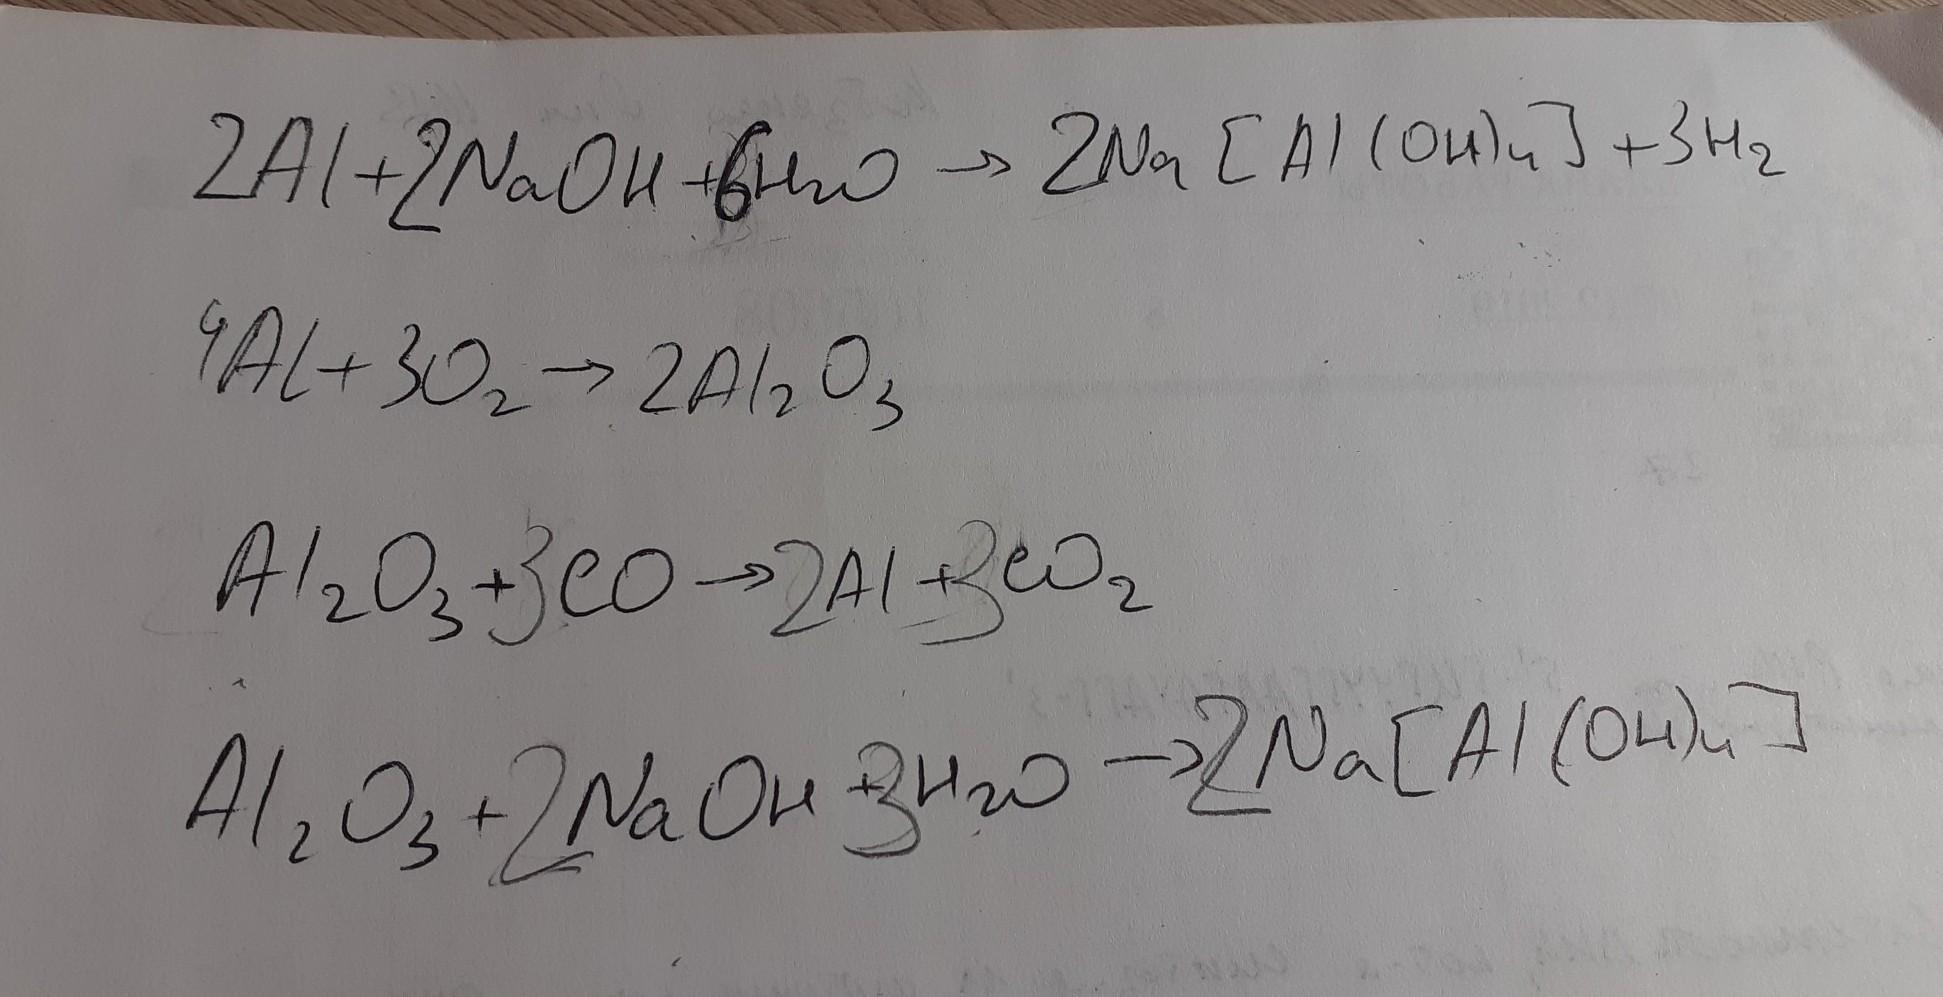 2Al+2NaOH+6H2O → 2Na[Al(OH)4]+3H2
4Al+3O2→2Al2O3
Al2O3+3CO→2Al+3CO2
Al2O3+2NaOH+3H2O→2Na[Al(OH)4]